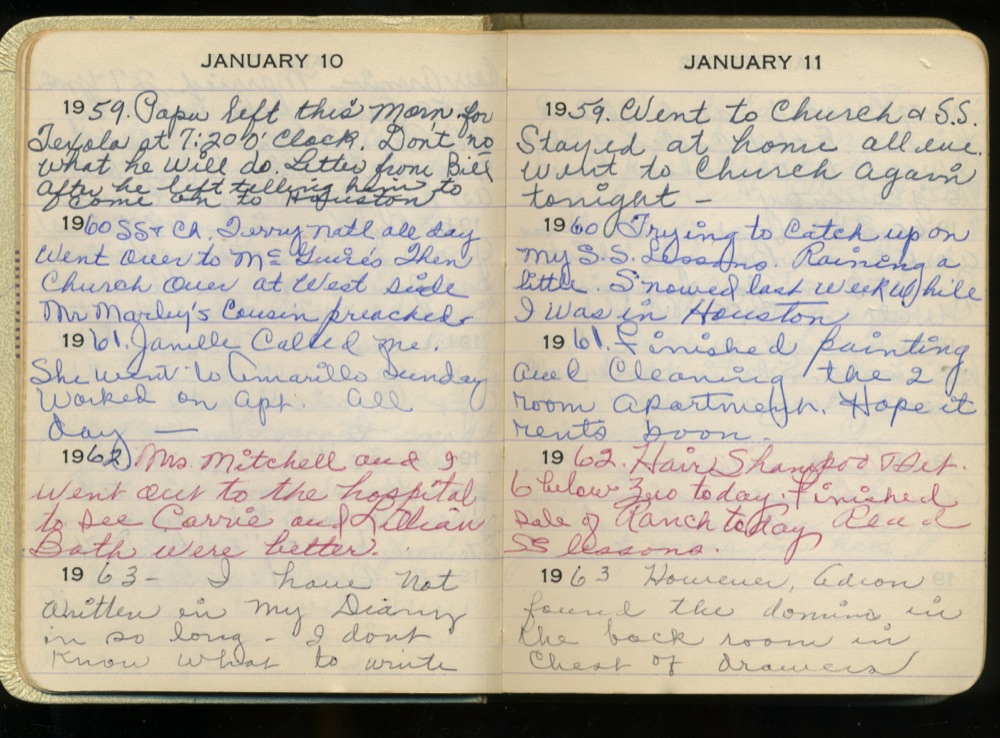 JANUARY 10
1959. Papa left this Morn. for
Texola at 7:20 O'Clock. Don't no
what he will do. Letter from Bill
after he left telling him to
come on to Houston
1960 SS & Ch. Terry natl all day
Went over to McGuires Then
Church over at West side
Mr Marley's Cousin preached.
1961. Janelle Called me.
She went to Amarillo Sunday
Worked on Apt. All
day —
1962 Mrs. Mitchell and I
went out to the hospital
to see Carrie and Lillian
Both were better.
1963 - I have not
written in my Diary
in so long - I dont
know what to write
JANUARY 11
1959. Went to Church & S.S.
Stayed at home all eve.
went to Church again
tonight -
1960 Trying to Catch up on
my S.S. Lessons. Raining a
little. Snowed last week while
I was in Houston
1961. Finished painting
and Cleaning the 2
room apartment. Hope it
rents soon.
1962. Hair Shampoo & Set.
6 below Zero today. Finished
sale of Ranch today Read
SS lessons.
1963 However,
found the domino in
the back room in
Chest of drawers